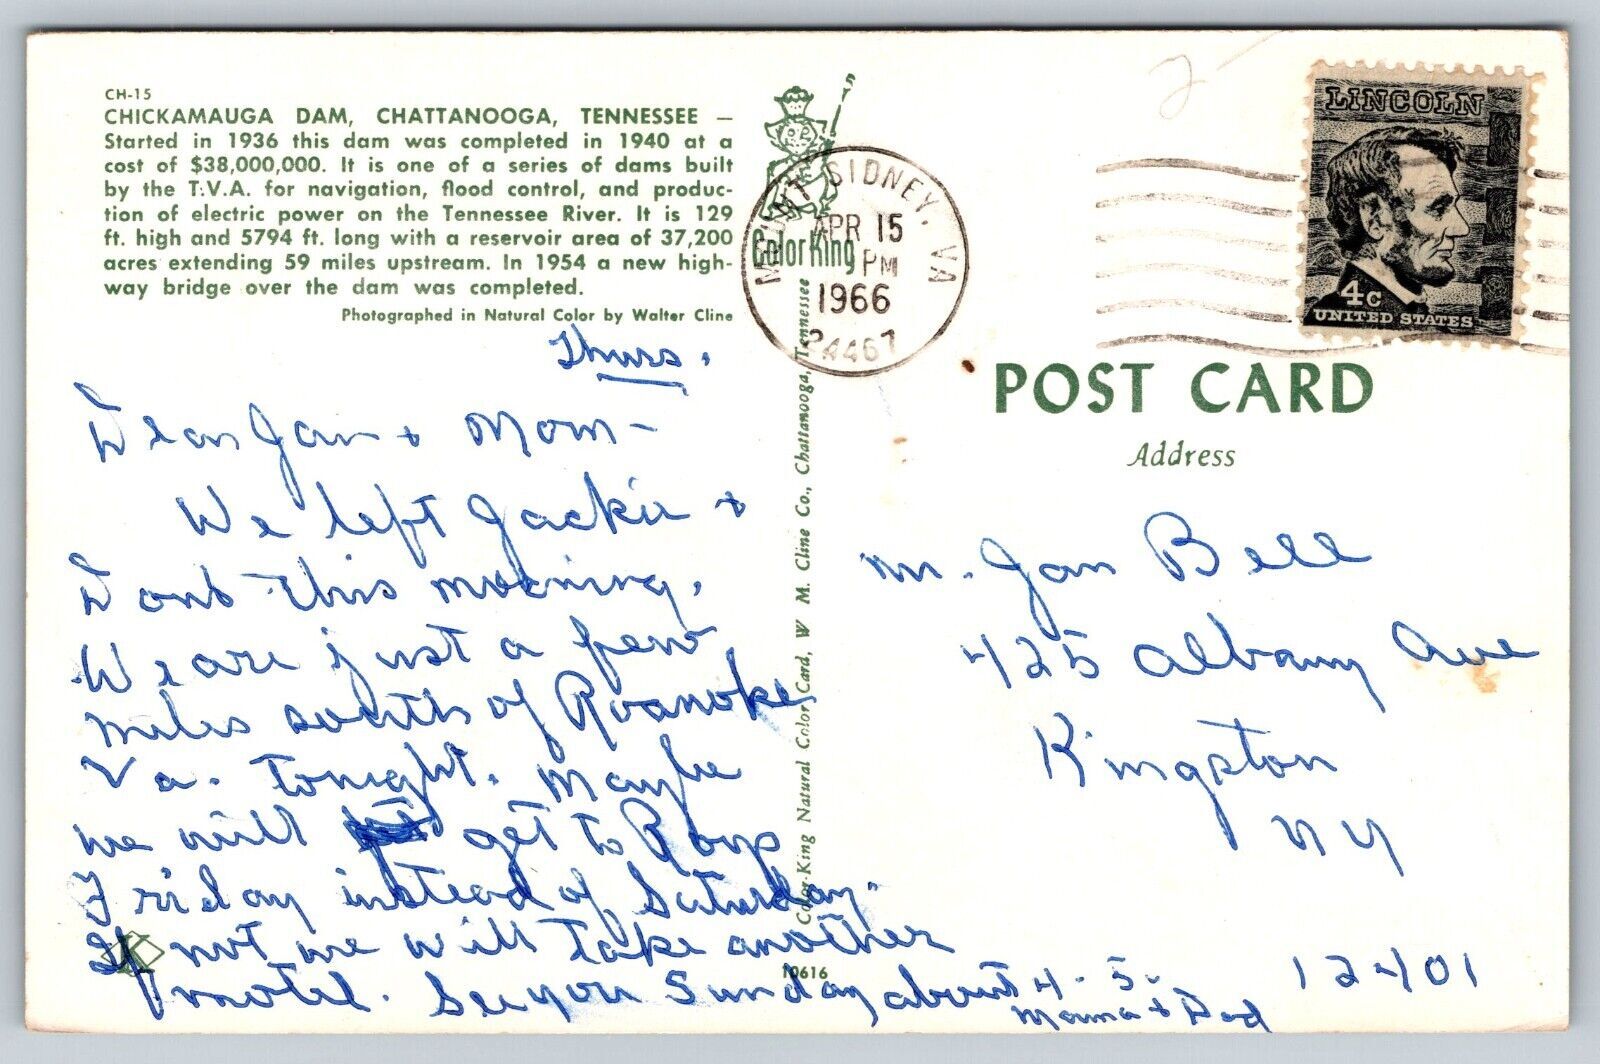 CH-15
CHICKAMAUGA DAM, CHATTANOOGA, TENNESSEE —
Started in 1936 this dam was completed in 1940 at a
cost of $38,000,000. It is one of a series of dams built
by the T.V.A. for navigation, flood control, and produc-
tion of electric power on the Tennessee River. It is 129
ft. high and 5794 ft. long with a reservoir area of 37,200
acres extending 59 miles upstream. In 1954 a new high-
way bridge over the dam was completed.
Photographed in Natural Color by Walter Cline
Thurs.
Dear Jan + Mom -
We left Jackie +
Don this morning.
We are just a few
miles south of Roanoke
Va. tonight. Maybe
we will get to Roys
Friday instead of Saturday.
If not we will take another
motel. See you Sunday about 4 - 5.
Mama + Dad
K
10616
Color-King Natural Color Card, W. M. Cline Co., Chattanooga, Tennessee
Color King
MOUNT SIDNEY, VA
APR 15
PM
1966
24467
2
LINCOLN
4c
UNITED STATES
POST CARD
Address
Mr. Jan Bell
425 Albany Ave
Kingston
NY
12401